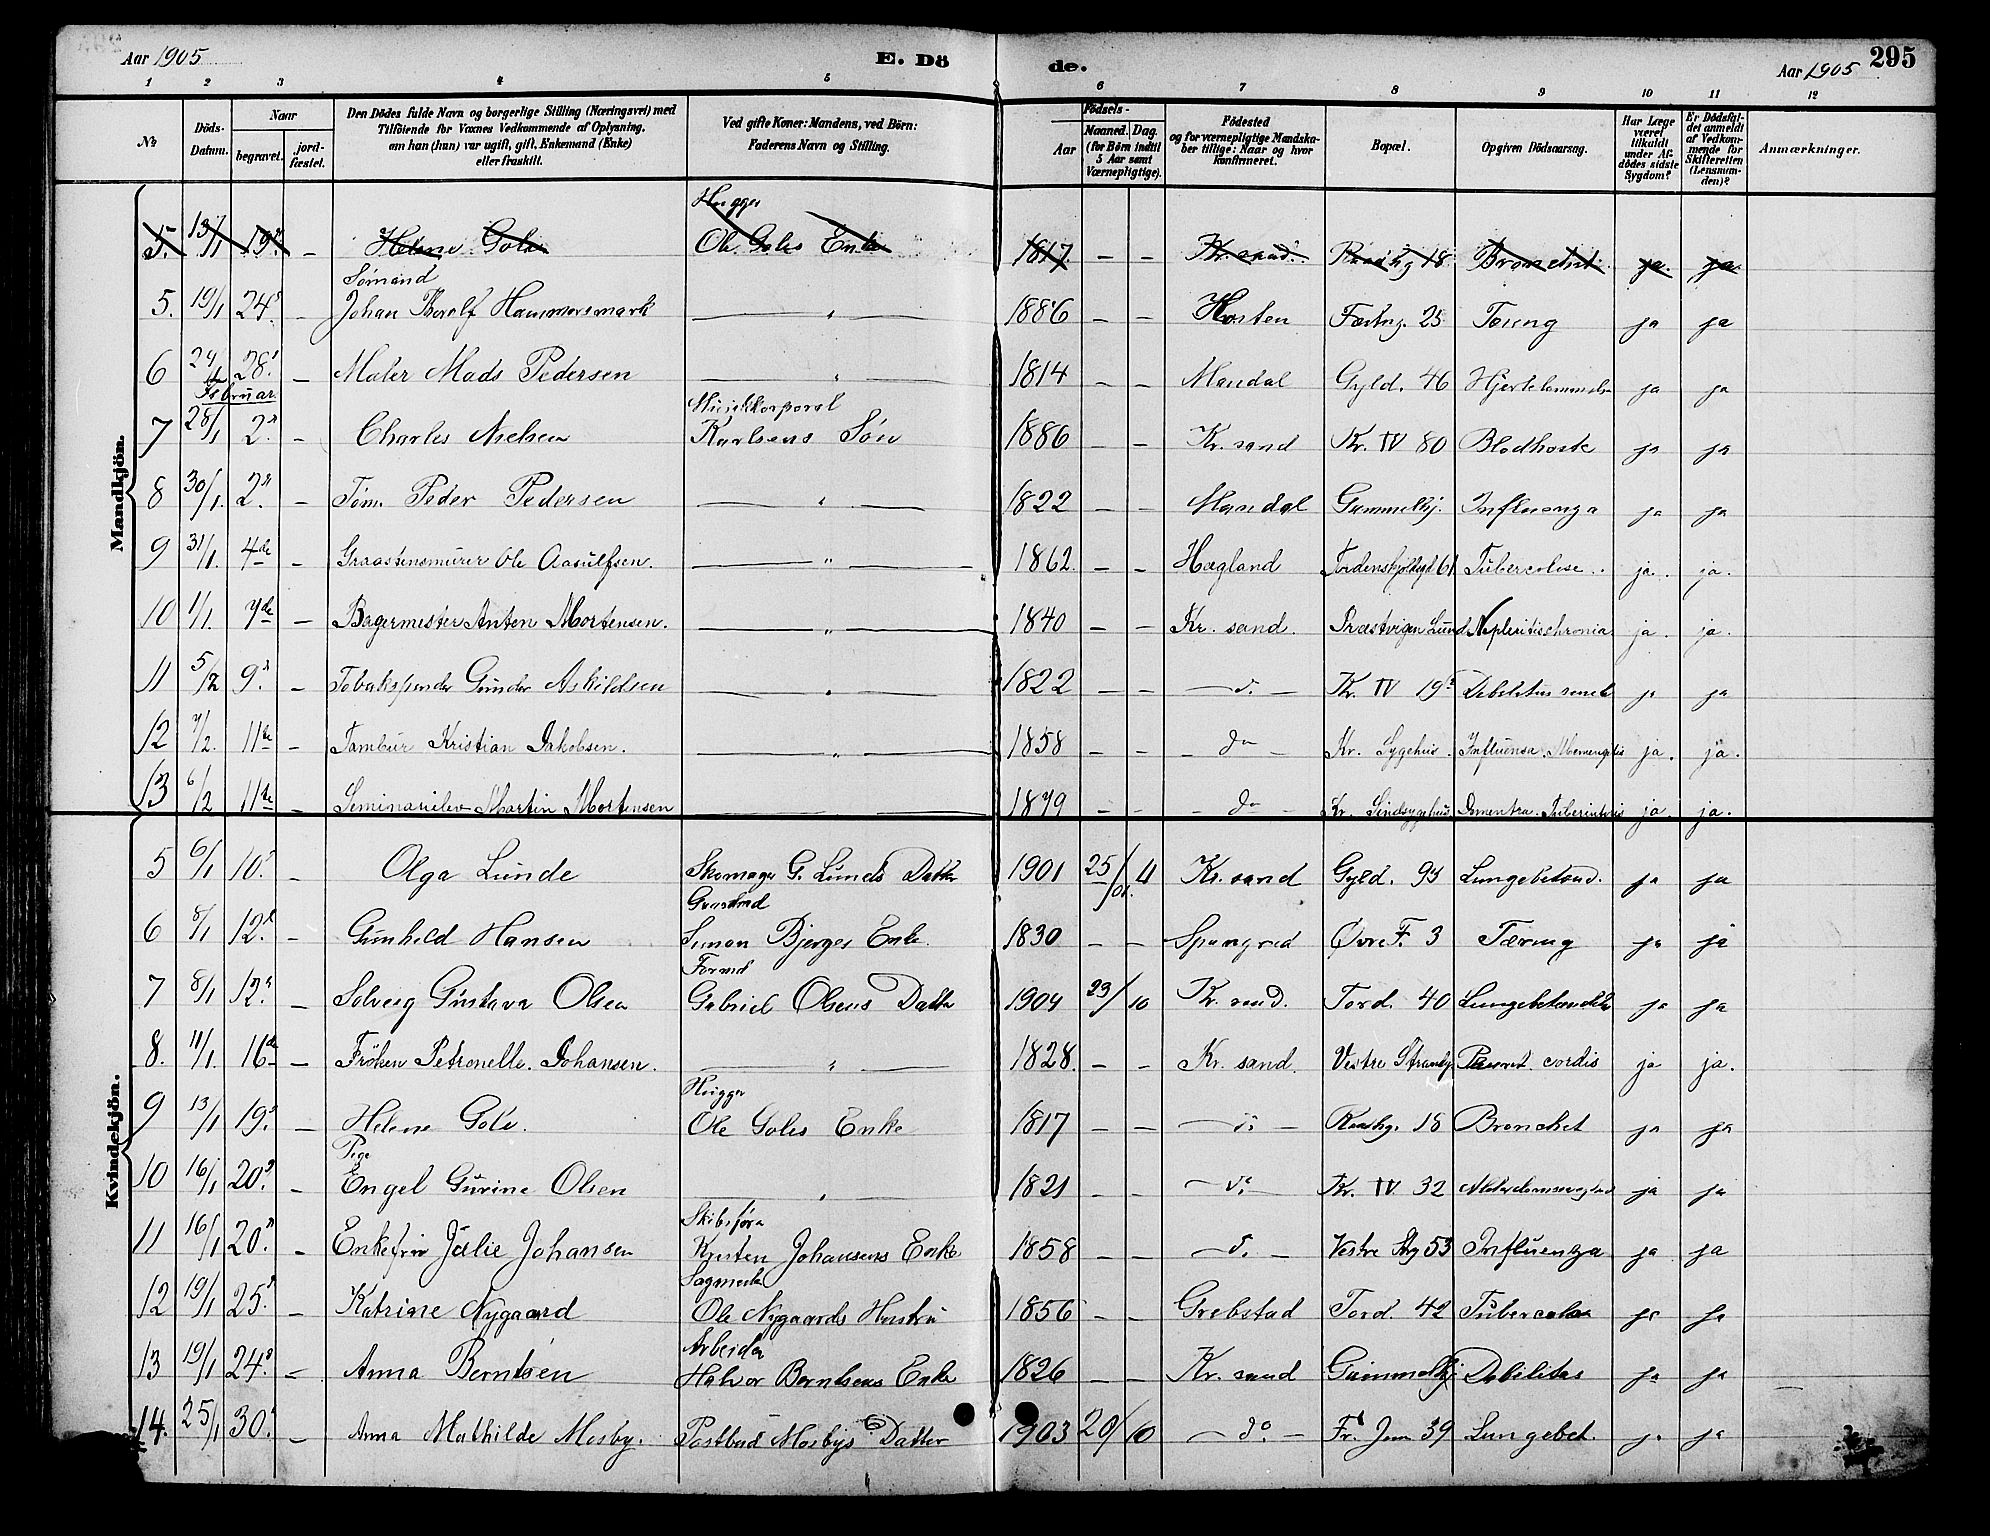 Aar 1905
E. Dö
de.
Aar 1905
295
1 2 3 4 5 6 7 8 9 10 11 12
No.
Döds-Datum.
Naar
begravet.
jord-fæstet.
Den Dödes fulde Navn og borgerlige Stilling (Næringsvei) med Tilföiende for Voxnes Vedkommende af Oplysning, om han (hun) var ugift, gift, Enkemand (Enke) eller fraskilt.
Ved gifte Koner: Mandens, ved Börn: Faderens Navn og Stilling.
Födsels-
Aar
Maaned. Dag.
(for Börn indtil 5 Aar samt Værnepligtige).
Födested og for værnepligtige Mandskaber tillige: Naar og hvor konfirmeret.
Bopæl.
Opgiven Dödsaarsag.
Har Læge været tilkaldt under Afdødes sidste Sygdom?
Er Dödsfaldet anmeldt af Vedkommende for Skifteretten (Lensmanden)?
Anmærkninger.
Mandkjön.
5. 13/1 19. – Helene Gole Hugger Ole Goles Enke 1817 – – Kr.sand 18 Bronchit. ja. ja.
5. 19/1 24. – Sømand Johan Hammersmark – " – 1886 – – Fæstng. 25 Tæring ja ja
6 24/1 28. – Maler Mads Pedersen – " – 1814 – – Mandal Gyld. 46 ja ja
Februar
7 28/1 2. – Charles Nielsen Musikkorporal Karlsens Søn 1886 – – Kr.sand Kr. IV 80 Blodhoste ja ja
8 30/1. 2. – Tøm. Peder Pedersen – " – 1822 – – Mandal Gammelby. Influenza ja ja
9 31/1. 4de – Graastensmurer Ole Aasulfsen. – " – 1862. – – Hægland Tordenskjoldsgd 61 Tubercolose. ja. ja.
10 1/1. 7de – Bagermester Anton Mortensen. – " – 1840 – – Kr. sand. Præstvigen Lund ja. ja.
11 5/2 9. – Tobakspinder Gunder Askildsen – " – 1822 – – – do. – Kr. IV 19 Debilitas ja ja
12 7/2. 11te – Tambur Kristian Jakobsen. – " – 1858 – – – do – Kr. Sygehus. Influensa ja. ja.
13 6/2 11te – Seminarielev Martin Mortensen – 1879 – – – do Kr. Sindsygehus ja. ja.
Kvindekjön.
5 6/1 10. – Olga Lunde Skomager G. Lunds Datter 1901 25/ 4 Kr.sand Gyld. 93 Lungebetænd. ja ja
6 8/1 12. – Gunhild Hansen Simon Bjerges Enke. 1830 – – Øvre F. 3 Tæring ja ja
7 8/1 12. – Solveig Gustava Olsen Formd Gabriel Olsens Datter 1904 23/10 Kr.sand. Tord. 40 ja ja
8. 11/1. 16de – Frøken Petronelle. Johansen. – " – 1828. – – Kr.sand. Vestre cordis ja ja.
9 13/1 19. – Helene Gole. Hugger Ole Goles Enke 1817 – – – do – 18 Bronchit ja ja
10 16/1 20. – Pige Engel Gurine Olsen – " – 1821 – – – do – Kr. IV 32 ja ja
11 16/1 20. – Enkefru Julie Johansen Skibsføre Johansens Enke 1858 – – – do – Vestre Stg 53 Influenza ja ja
12 19/1 25. – Katrine Nygaard Ole Nygaards Hustru 1856 – – Grebstad Tord. 42 ja ja
13 19/1 24. – Anna Berntsen Arbeider Halvor Berntsens Enke 1826 – – Kr.sand Debilitas ja ja
14. 25/1 30. – Anna Mathilde Mosby. Postbud Mosbys Datter 1903 20/10 – do. – Fr. 39 Lungebet. ja ja